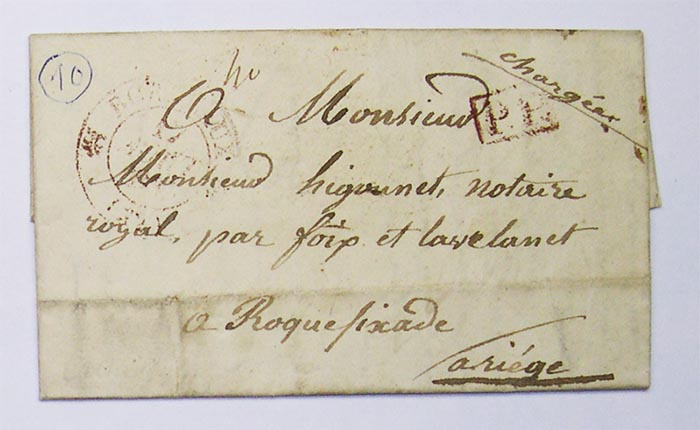 10
chargée
A Monsieur
P.P.
Monsieur higounet, notaire
royal, par foix et lavelanet
a Roquefixade
ariége